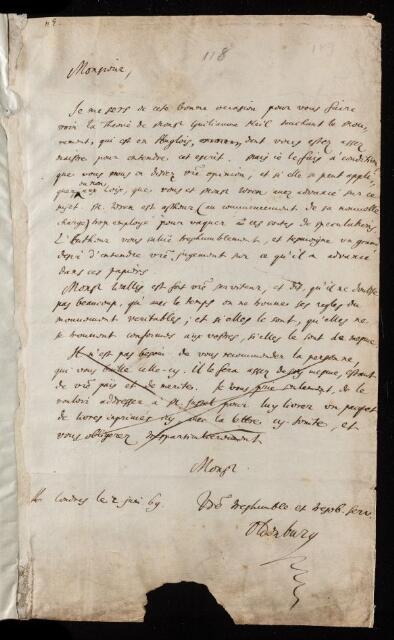 118
Monsieur,
Je me sers de cete bonne occasion pour vous faire
voir la theorie de Monsr Guiliaume Neil touchant le mou-
vement, qui est en Anglois, dont vous estes assez
maistre pour entendre cet escrit. Mais ie le fais à condition,
que vous nous en disiez vre opinion, et si elle se peut appli-
quer ou non, aux Loix, que vous et Monsr Wren avez advancé sur ce
sujet. Mr. Wren est asthure (au commencement de sa nouvelle
charge) trop employé pour vaquer à ces sortes de speculations.
L'Autheur vous salue treshumblement, et tesmoigne un grand
desir d'entendre vre jugement sur ce qu'il a advancé
dans ces papiers.
Monsr Wallis est fort vre serviteur, et dit, qu'il ne doubte
pas beaucoup, qu'avec le temps on ne trouve ses regles du
mouvement veritables; et si elles le sont, qu'elles ne
se trouvent conformes aux vostres, si elles le sont de mesme.
Il n'est pas besoin de vous recommander la personne,
qui vous celle-cy. il le fera assez de soy mesme, estant
de vre païs et de merite. Je vous prie seulement, de le
vouloir addresser à Mr. pour luy livrer un paquet
de livres imprimés avec la lettre cy-jointe, et
vous obligerez
Monsr
A Londres le 2 juin 69.
Vre treshumble et tresob. serv.
Oldenburg